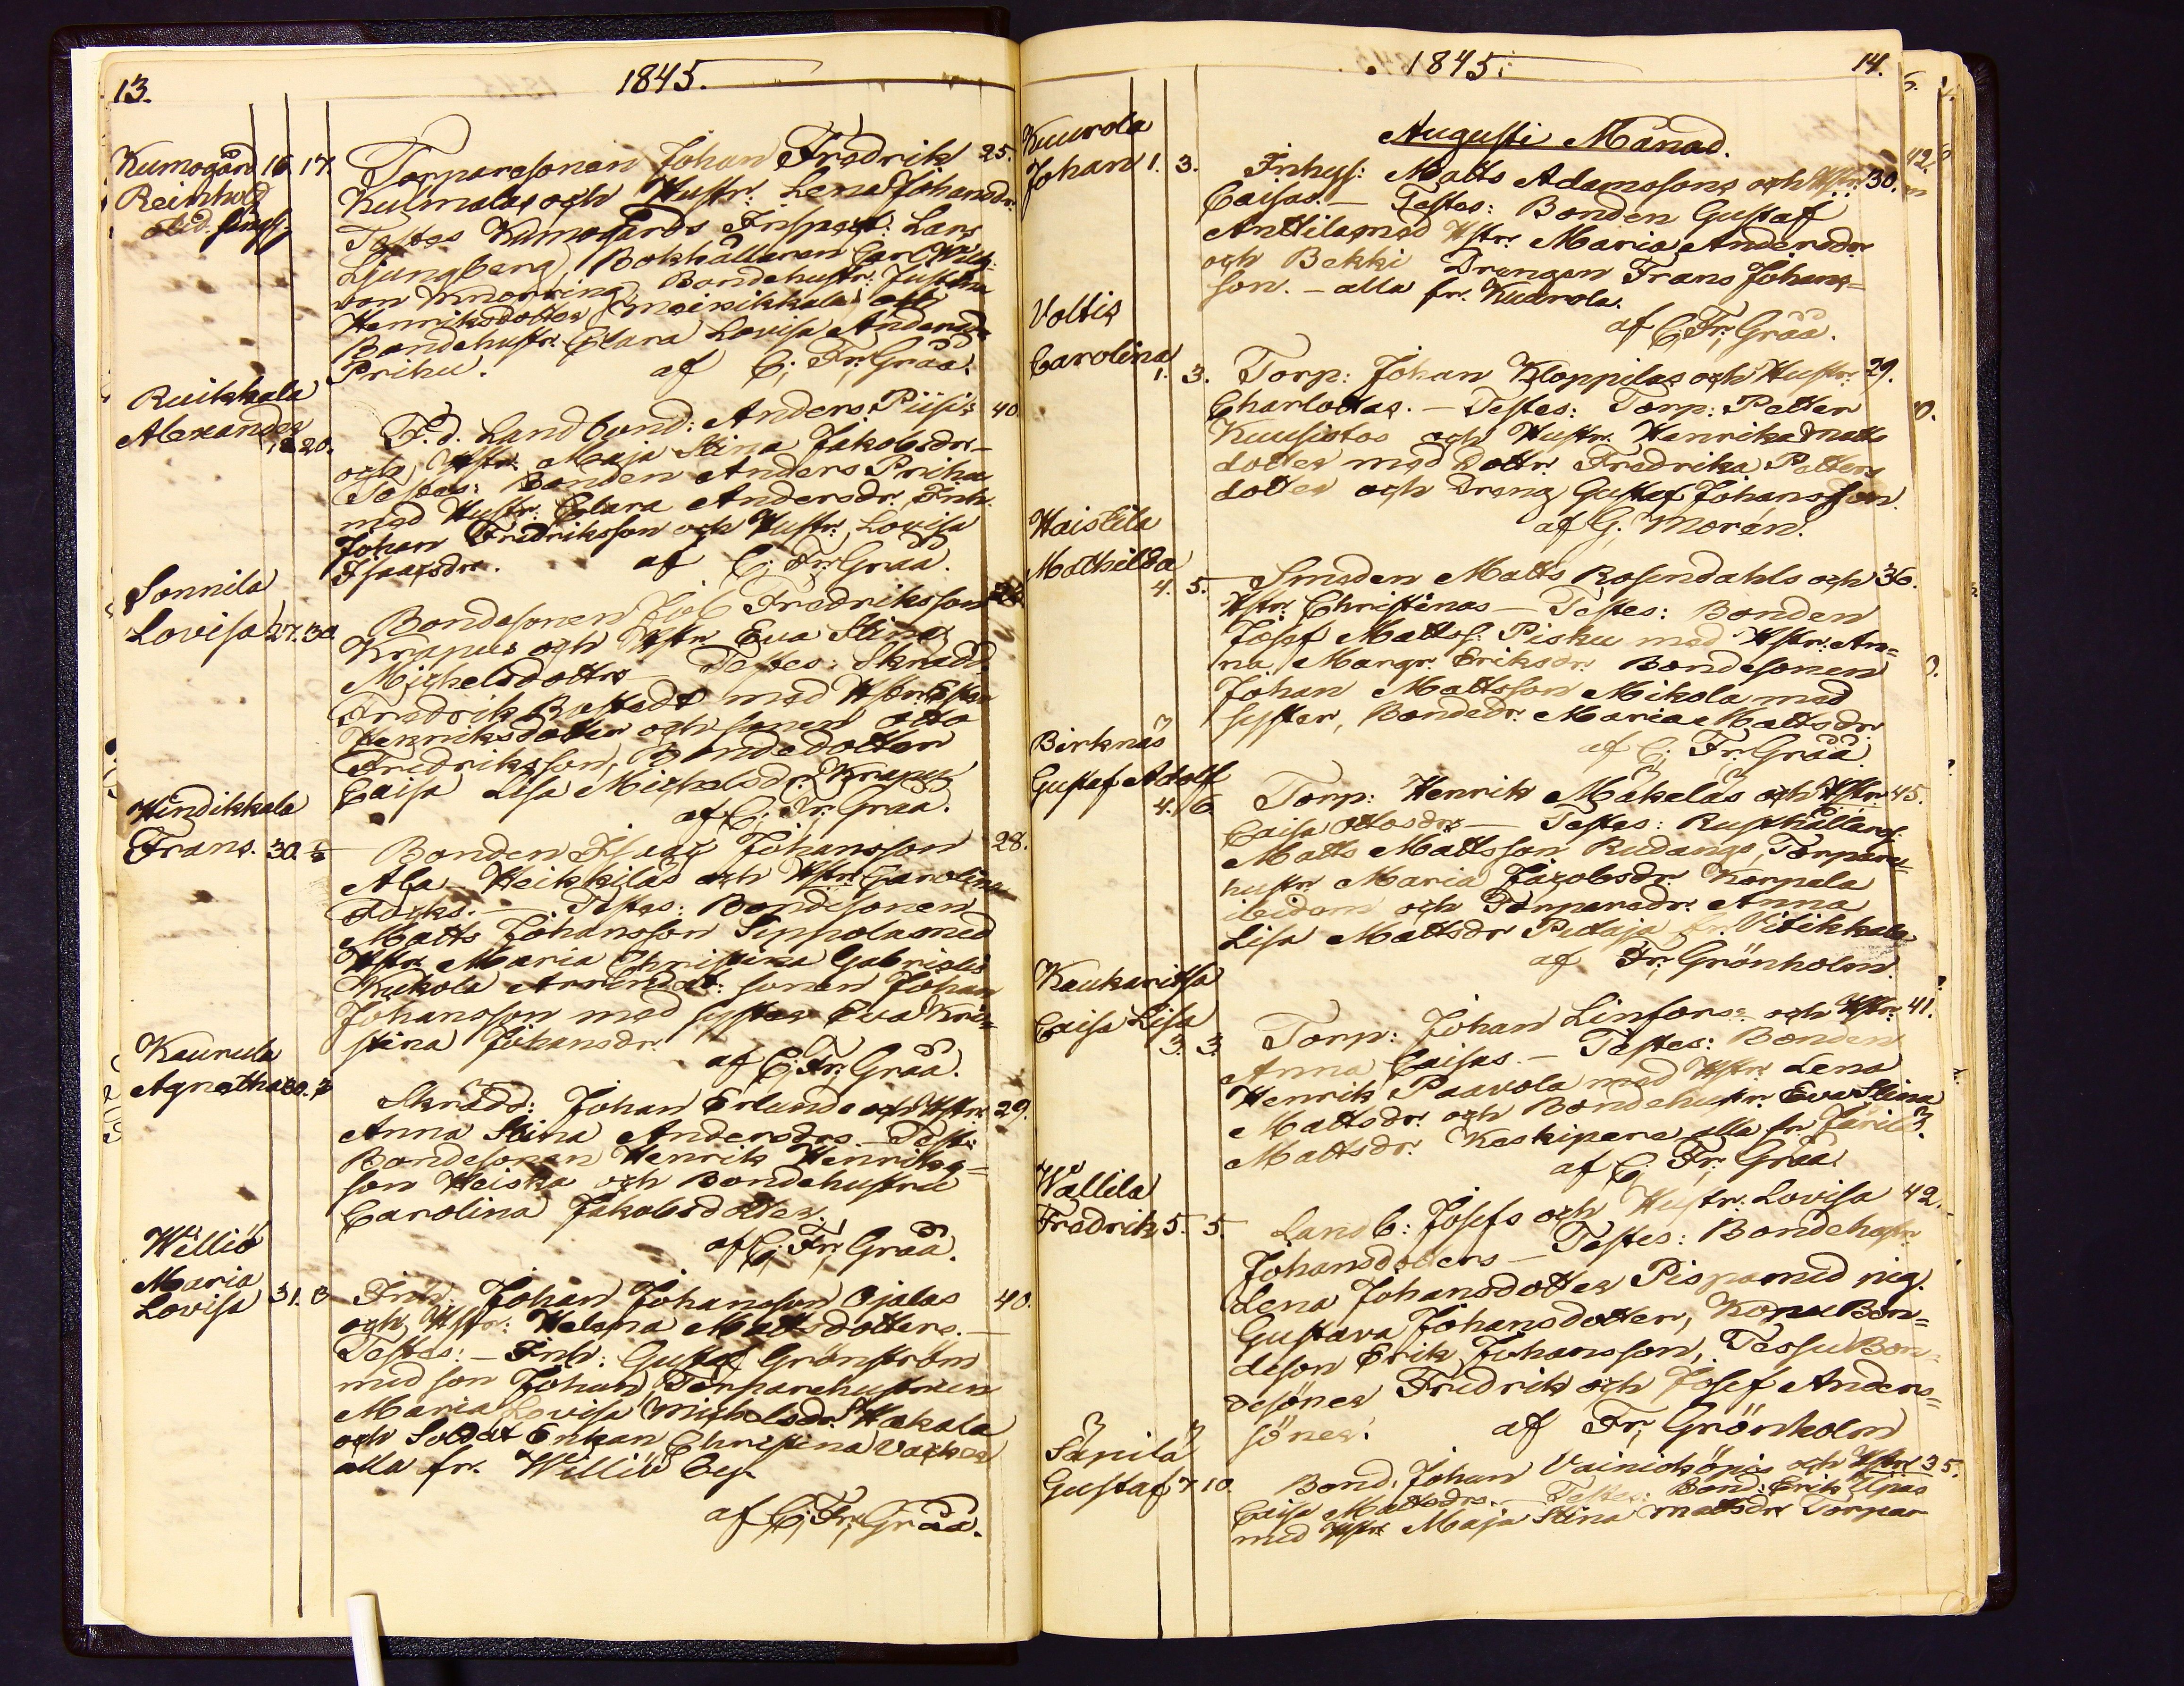 13.
1845.
Kumogård 16. 17. Torparesonen Johan Fredrik 25.
Reinhold
Kulmalas och Hustr: Lena Johansdr.
Testes Kumogårds Inspect: Lars
Ljungberg, Bokhållaren Carl Wilh:
von Knorring Bondehustr: Justina
Henriksdotter
Bondehustr. Clara Lovisa Andersdr
Prihu. af C. Fr. Gråå.
Ruikkala
Alexander 18 20. F.d. Landbond: Anders Piisis 40
och Hstr. Maja Stina Jakobsdr-
Testes: Bonden Anders Prihu
med Hustr. Clara Andersdr, Inh.
Johan Fredriksson och Hustr. Lovisa
Isaacsdr. af C. Fr. Gråå.
Sonnila
Lovisa 27. 30. Bondesonen Fredriksson
Krapus och Hstr Eva Stina
Michelsdottrs Testes: Skrädd.
Fredrik med Hstr.
Henriksdotter och sonen Otto
Fredriksson, Bondedotter
Caisa Lisa Michelsdr. Krapu
af C. Fr. Gråå.
Hindikkala
Frans. 30. Bonden Isaac Johansson 28.
Ala Heikkilas och Hstr. Carolina
Testes: Bondesonen
Matts Johansson Seppola med
Hstr. Maria Christina Gabrielsdr
Kukola sonen Johan
Johansson med syster Eva Kri-
stina Johansdr.
af C. Fr. Gråå.
Kaurula
Agnetha 30. Skrädd: Johan Erlunds och Hstr. 29.
Anna Stina Andersdrs. Test:
Bondesonen Henrik Henriks=
son Heiska och Bondehustru
Carolina Jakobsdotter.
af C. Fr. Gråå.
Williö
Maria
Lovisa 31. 3 Inh. Johan Johansson Ojalas 40.
och Hstr: Helena Mattsdotters.—
Testes:— Inh: Gustaf Grönström
med son Johan, Torparehustrun
Maria Lovisa Michelsdr. Hakala
och Soldat Enkan Christina Vacker
alla fr. Williö By.
af C. Fr. Gråå.
1845.
14.
Augusti Månad.
Kuurola
Johan 1. 3. Inhys: Matts Adamssons och Hstr. 30.
Caisas.— Testes: Bonden Gustaf
Anttila med Hstr. Maria Andersdr.
och Bekki Drengen Frans Johans=
son.— alla fr. Kuurola.
af C. Fr. Gråå.
Voltis
Carolina 1. 3. Torp: Johan Kloppilas och Hustr. 29.
Charlottas.— Testes: Torp: Petter
Kuusistos och Hustr. Henrika Matts
dotter med dottr. Fredrika Petters
dotter och Dreng Gustaf Johansson
af G. Morén.
Haistila
Mathilda 4. 5. Smeden Matts Rosendahls och 36.
Hstr. Christinas— Testes: Bonden
Josef Mattss: Pisku med Hstr: An=
na Margr. Eriksdr. Bondesonen
Johan Mattsson Mikola med
syster, Bondedr. Maria Mattsdr
af C. Fr. Gråå.
Birknäs
Gustaf Adolf 4. 6. Torp: Henrik Mäkeläs och Hstr. 45.
Caisa Ottosdrs— Testes: Rusthållars.
Matts Mattsson Rudango, Torpare=
hustr. Maria Jacobsdr. Korpela
ibidem och Torparedr. Anna
Lisa Mattsdr Pidaja fr. Vitikkala
af Fr. Grönholm.
Kaukaritsa
Caisa Lisa 3. 3. Torp: Johan Linfors och Hstr. 41.
Anna Caisas.— Testes: Bonden
Henrik Paavola med Hstr. Lena
Mattsdr. och Bondehustr. Eva Stina
Mattsdr. Keskipere, alla fr.
af C. Fr. Gråå.
Wallila
Fredrik 5. 5. Lansb: Josefs och Hustr. Lovisa 42.
Johansdotters— Testes: Bondehustr.
Lena Johansdotter Pispa med pig.
Gustava Johansdotter, Kopu Bon=
deson Erik Johansson, Tessu Bon=
desöner Fredrik och Josef Anders=
söner. af Fr. Grönholm
Sänilä
Gustaf 7. 10. Bond. Johan Vainiskönis och Hstr. 35.
Caisa Mattsdrs.— Testes: Bond: Erik Upas
med Hstr. Maja Stina Mattsdr Torpar